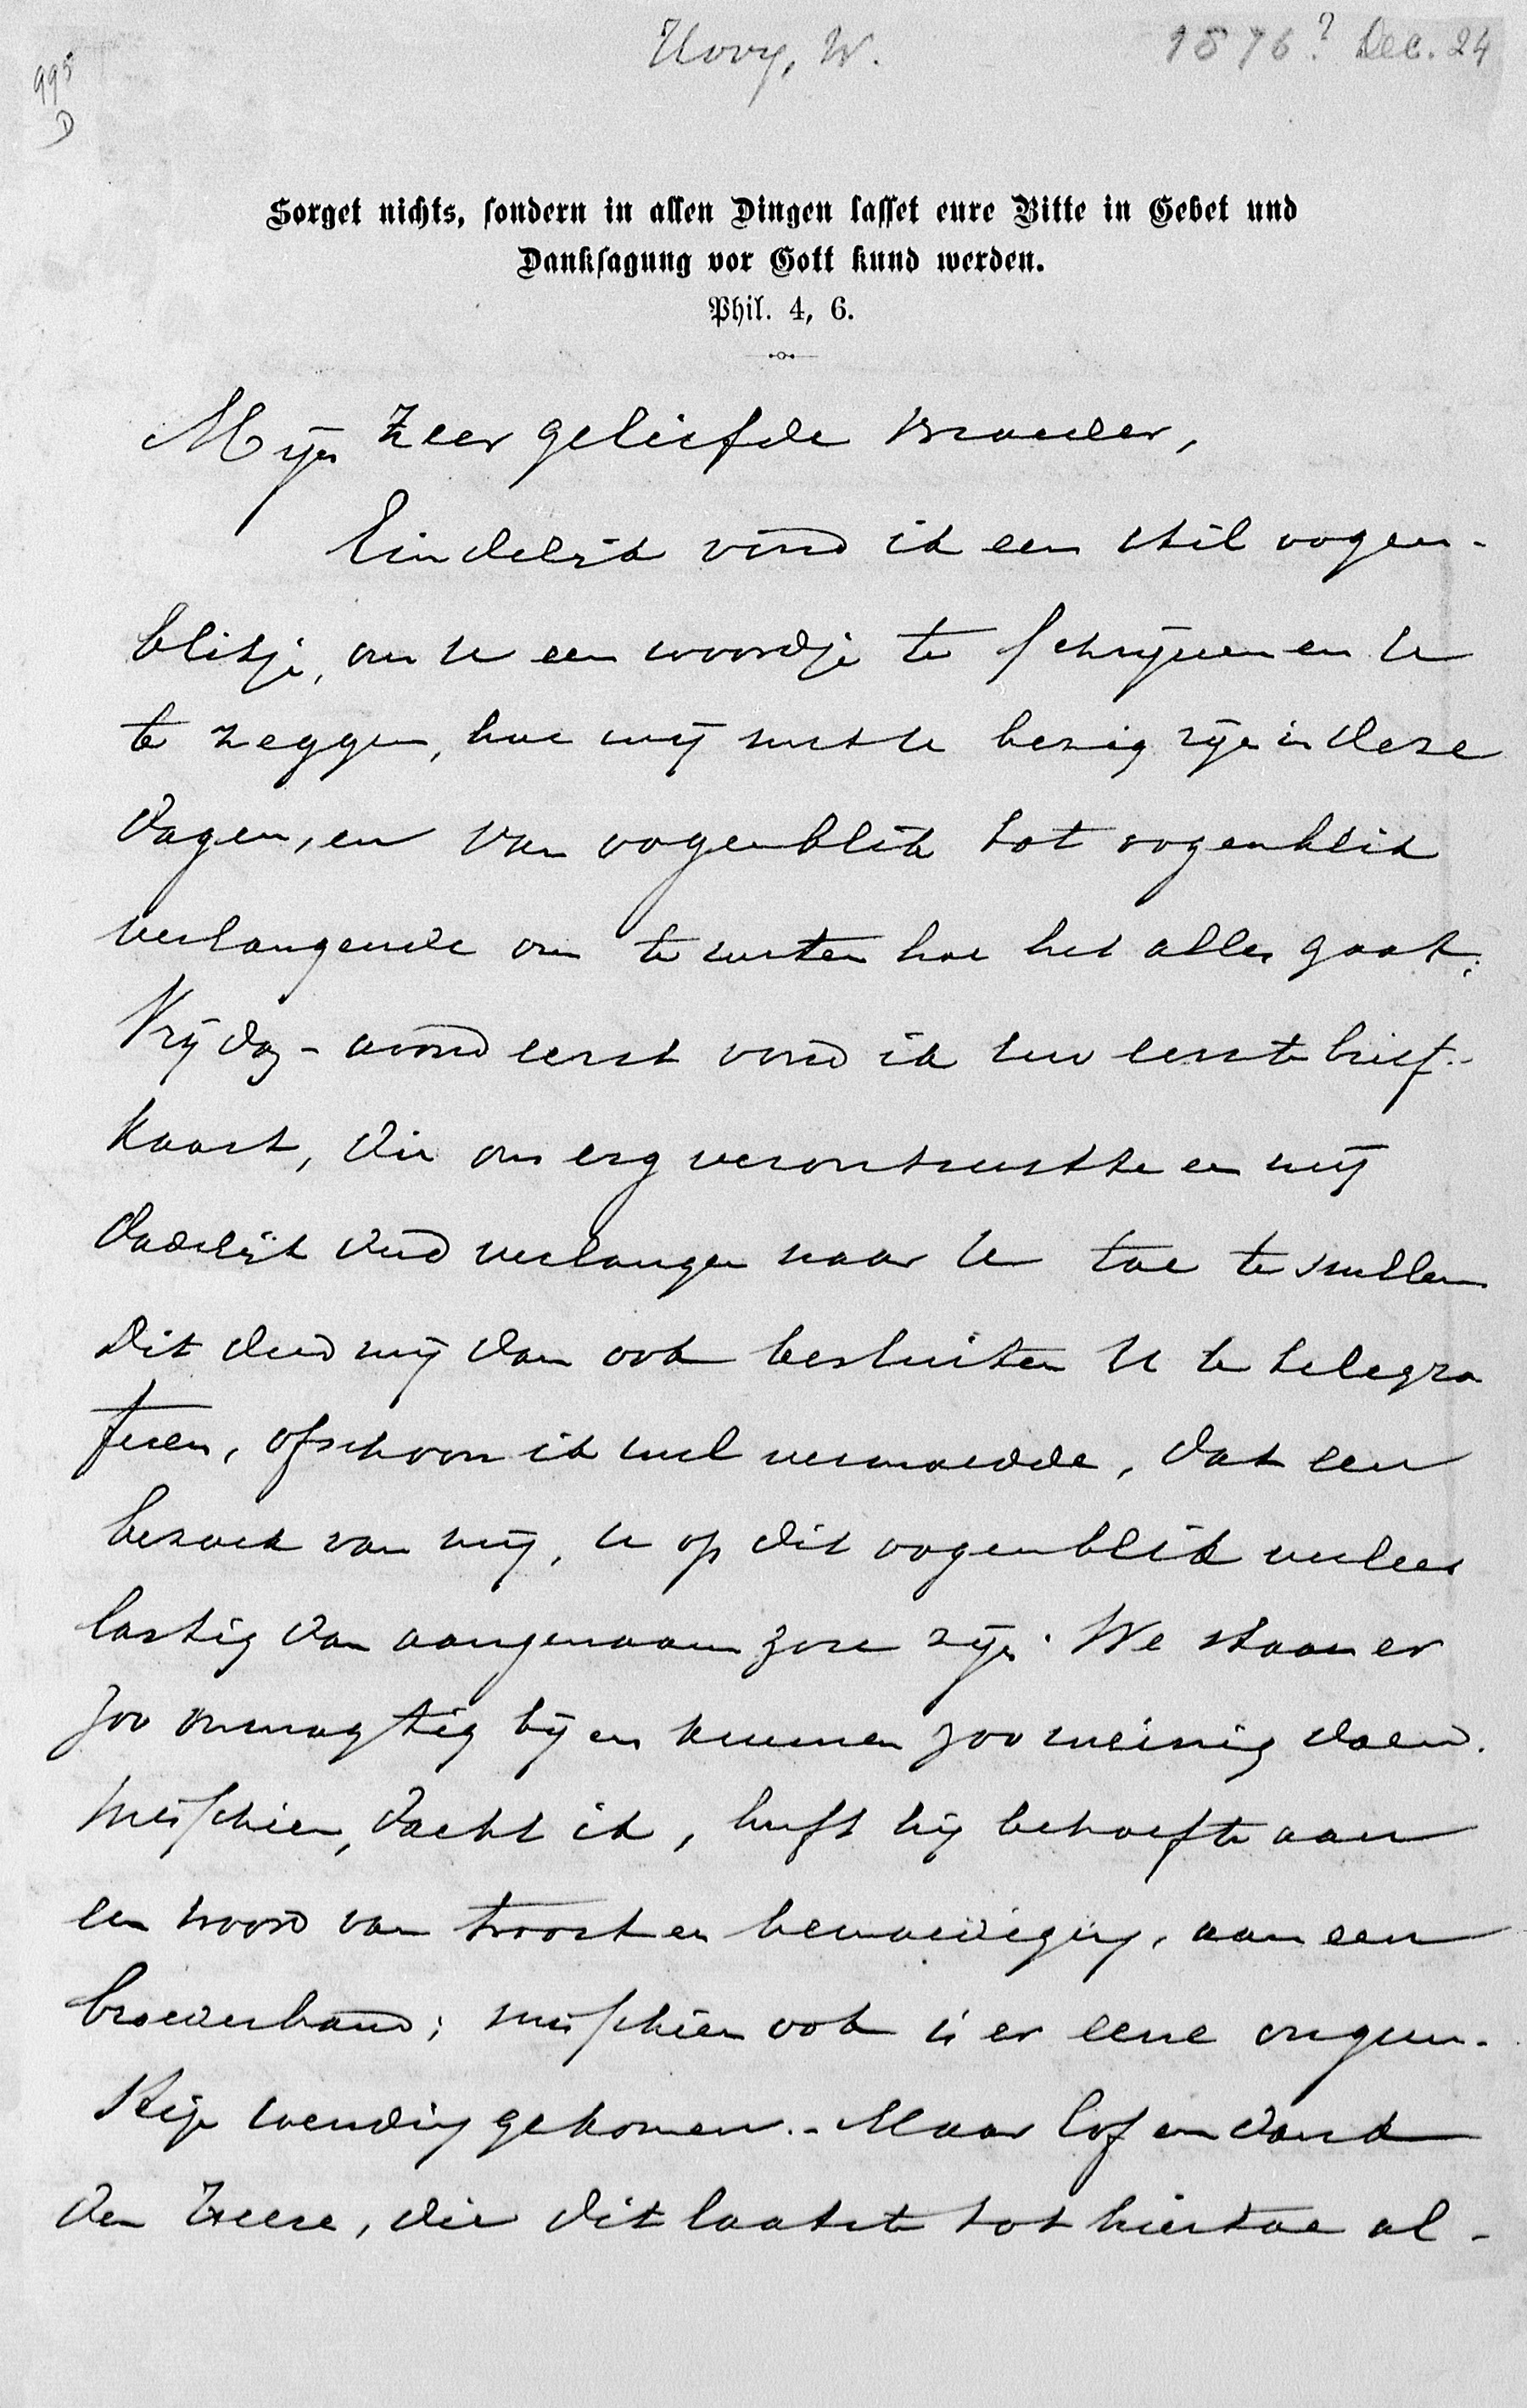 Hovy, W.
1876? Dec. 24
995
D
Sorget nichts, sondern in allen Dingen lasset eure Bitte in Gebet und
Danksagung vor Gott kund werden.
Phil. 4, 6.
Mijn zeer geliefde Broeder,
Eindelijk vind ik een stil oogen-
blikje, om U een woordje te schrijven en U
te zeggen, hoe wij met U bezig zijn in deze
dagen, en van oogenblik tot oogenblik
verlangende om te weten hoe het alles gaat.
Vrijdag-avond eerst vond ik uw eerste brief-
kaart, die ons erg verontrustte en mij
dadelijk deed verlangen naar U toe te snellen
Dit deed mij dan ook besluiten U te telegra
feeren, ofschoon ik wel vermoedde, dat een
bezoek van mij, U op dit oogenblik veeleer
lastig dan aangenaam zou zijn. We staan er
zoo onmagtig bij en kunnen zoo weinig doen.
Misschien, dacht ik, heeft hij behoefte aan
een woord van troost en bemoediging, aan een
broederhand; misschien ook is er eene ongun-
stige wending gekomen. - Maar lof en dank
den Heere, die dit laatste tot hiertoe al-